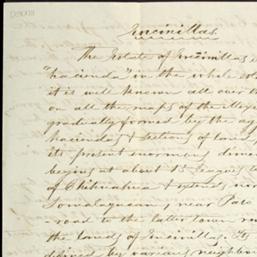 Encinillas
The Estate of Encinillas
"hacienda" in the whole
it is well known all over
on all the maps of the
gradually formed by the
haciendas & sections of land
its present enormous
begins at about 15 leagues
of Chihuahua & extends
near Paso
road to the latter town
the lands of Encinillas. Its
by various